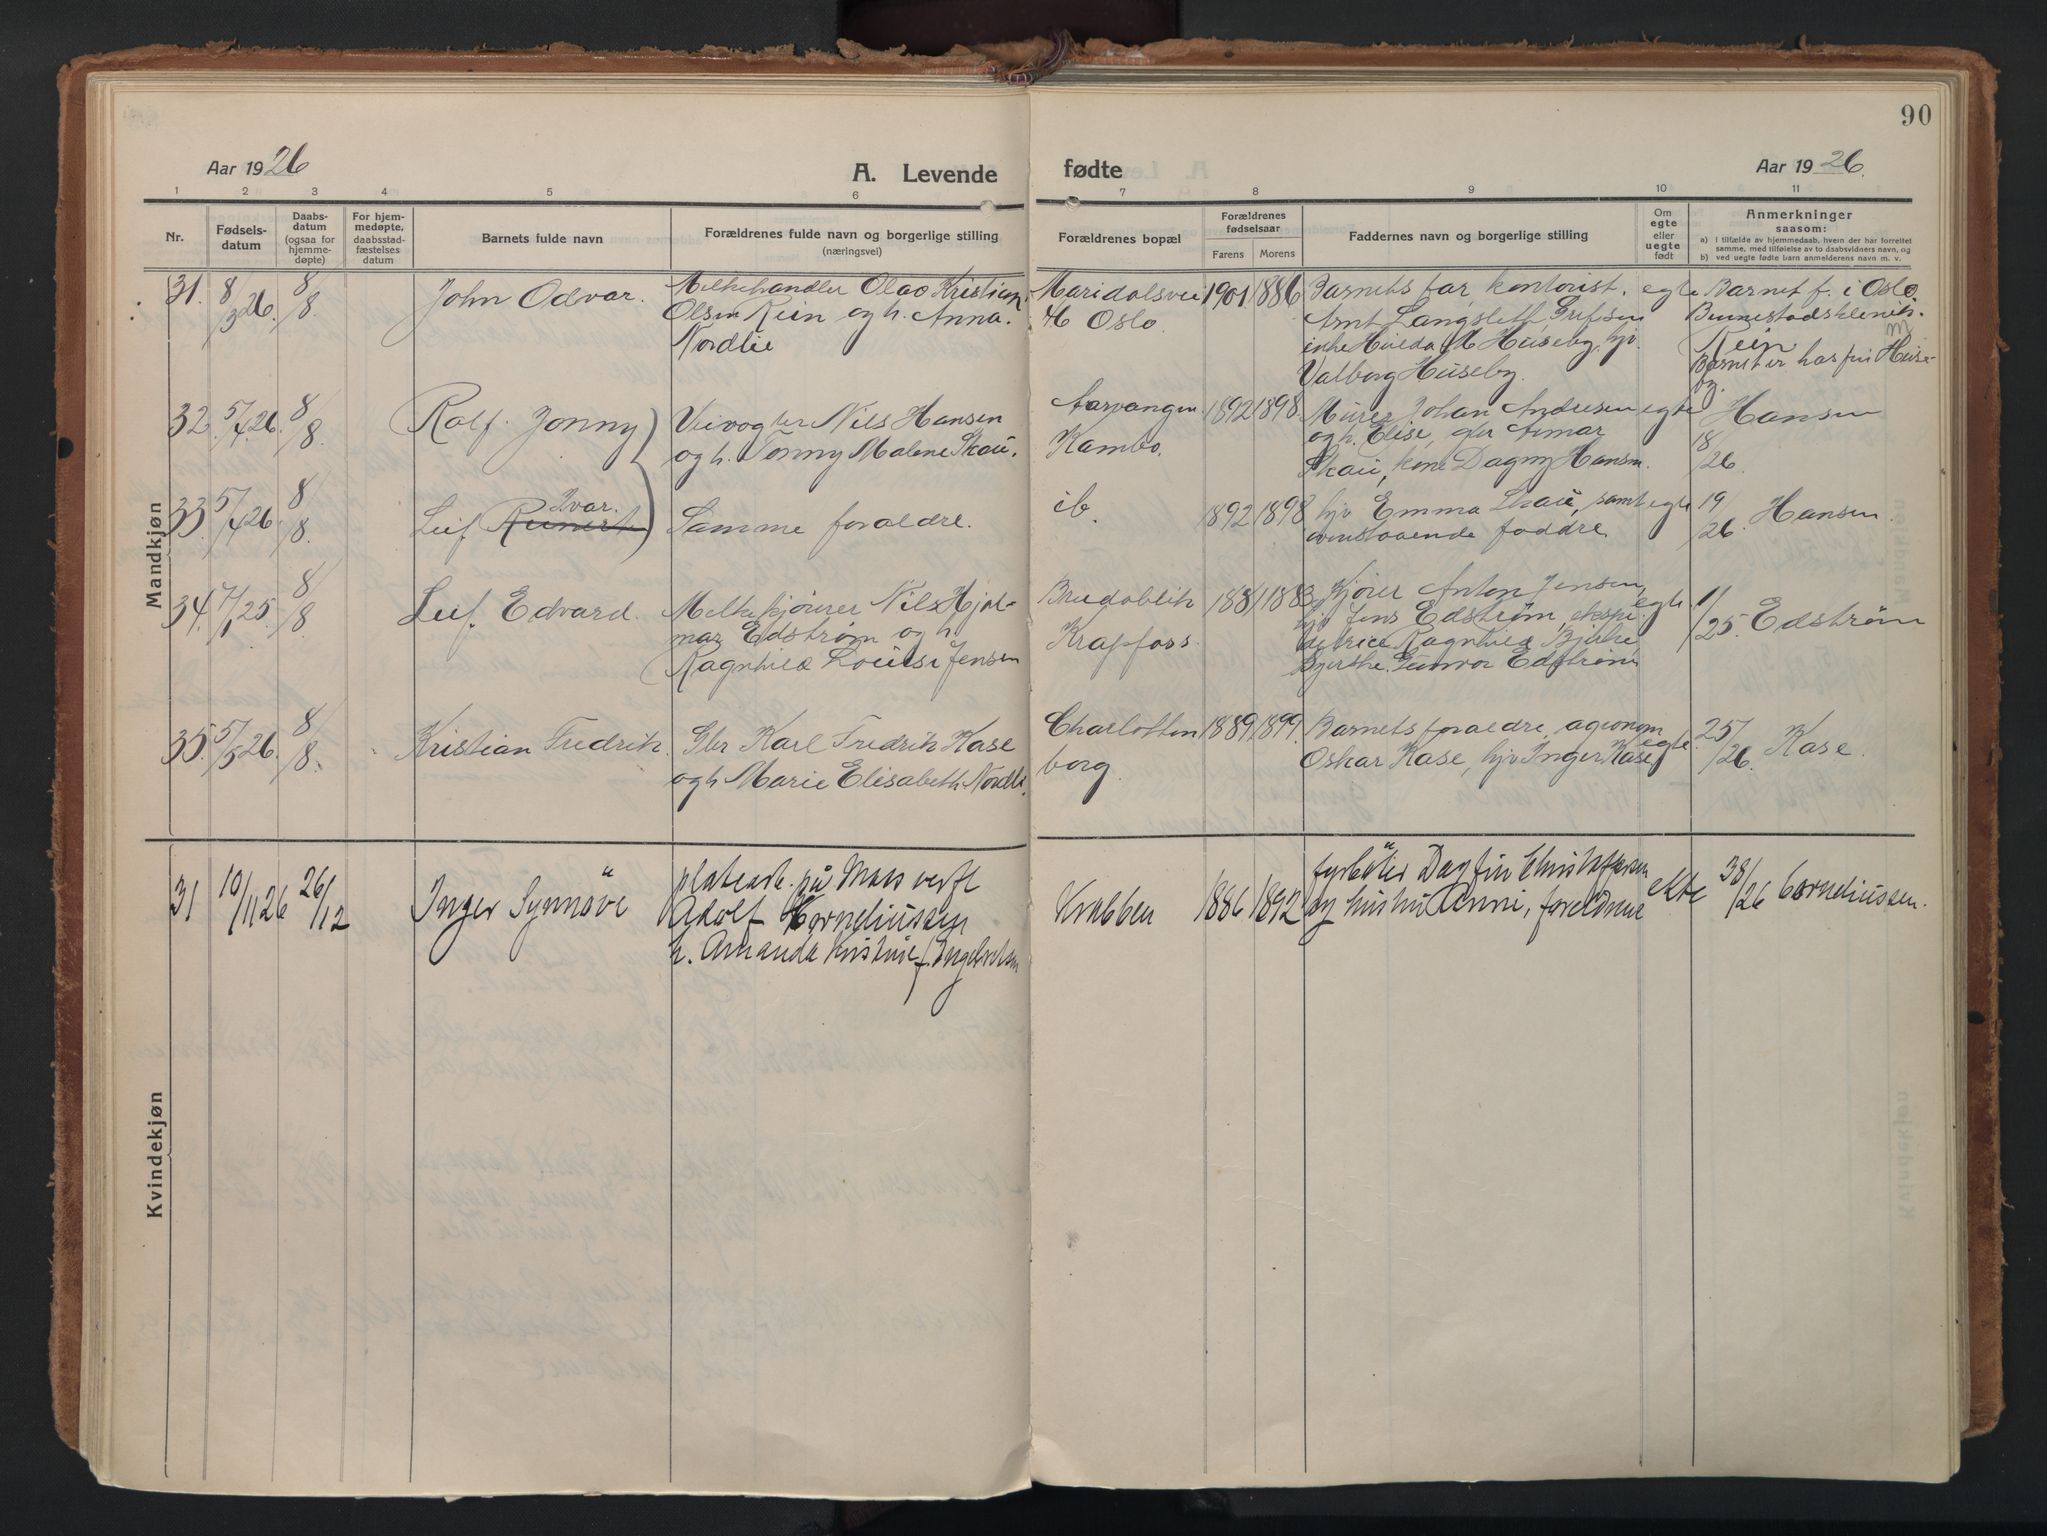 90
Aar 1926
A. Levende
fødte
Aar 1926.
1 2 3 4 5 6 7 8 9 10 11
Nr.
Fødsels-
datum
Daabs-
datum
(ogsaa for
hjemme-
døpte)
For hjem-
medøpte,
daabsstad-
fæstelses
datum
Barnets fulde navn
Forældrenes fulde navn og borgerlige stilling
(næringsvei)
Forældrenes bopæl
Forældrenes
fødselsaar
Farens Morens
Faddernes navn og borgerlige stilling
Om
egte
eller
uegte
født
Anmerkninger
saasom:
a) I tilfælde av hjemmedaab, hvem der har forrettet
samme, med tilføielse av to daabsvidners navn, og
b) ved uegte fødte barn anmelderens navn m. v.
Mandkjøn
31. 8/3 26. 8/8. John Odvar.
Melkehandler Olav Kristian
Olsen Rein og h. Anna
Nordlie
Maridalsvei
Oslo.
1901 1886
Barnets far, kontorist
Arnt Langsleth Grefsen
Huseby, hjv.
Valborg Huseby.
egte
Barnet f. i Oslo.
Rein
Barnet er hos fru Huse-
by.
32. 5/7. 26. 8/8. Rolf Jonny
Veivogter Nils Hansen
og h. Tonny Malene Skau.
Aarvangen
Kambo.
1892 1898.
Murer Johan Andresen
og h. Elise, gbr Aimar
Skau, kone Dagny Hansen.
egte
Hansen
18/26.
33. 5/7 26. 8/8. Leif Reinert Ivar.
Samme foraldre.
ib.
1892 1898
hjv Emma Skau, samt
ovenstaaende faddre.
egte
19/26. Hansen.
34. 7/1 25. 8/8. Leif Edvard.
Melkekjører Nils Hjal-
mar Edstrøm og h.
Ragnhild Louise Jensen
Bredablik
Krapfoss.
1881 1883
Kjører Anton Jensen,
hjv Jens Edstrøm, ekspe-
ditrice Ragnhild Bjerke,
Bjerke. Gunvor Edstrøm
egte
11/25. Edstrøm
35. 5/5 26. 8/8. Kristian Fredrik.
Gbr Karl Fredrik Kase
og h Marie Elisabeth Nordli.
Charlotten
borg
1889 1899.
Barnets foraldre, agronom
Oskar Kase, hjv Inger Kase
egte.
25/26. Kase.
Kvindekjøn
31 10/11 26 26/12 Inger Synnöve
platearb. på Moss verft
Adolf Korneliussen
h. Amanda Kristine f. Ingebretsen
Krabben
1886 1892
fyrböter Dagfin Christofersen
og hustru Anni, foreldrene
ekte
38/26 Corneliussen.